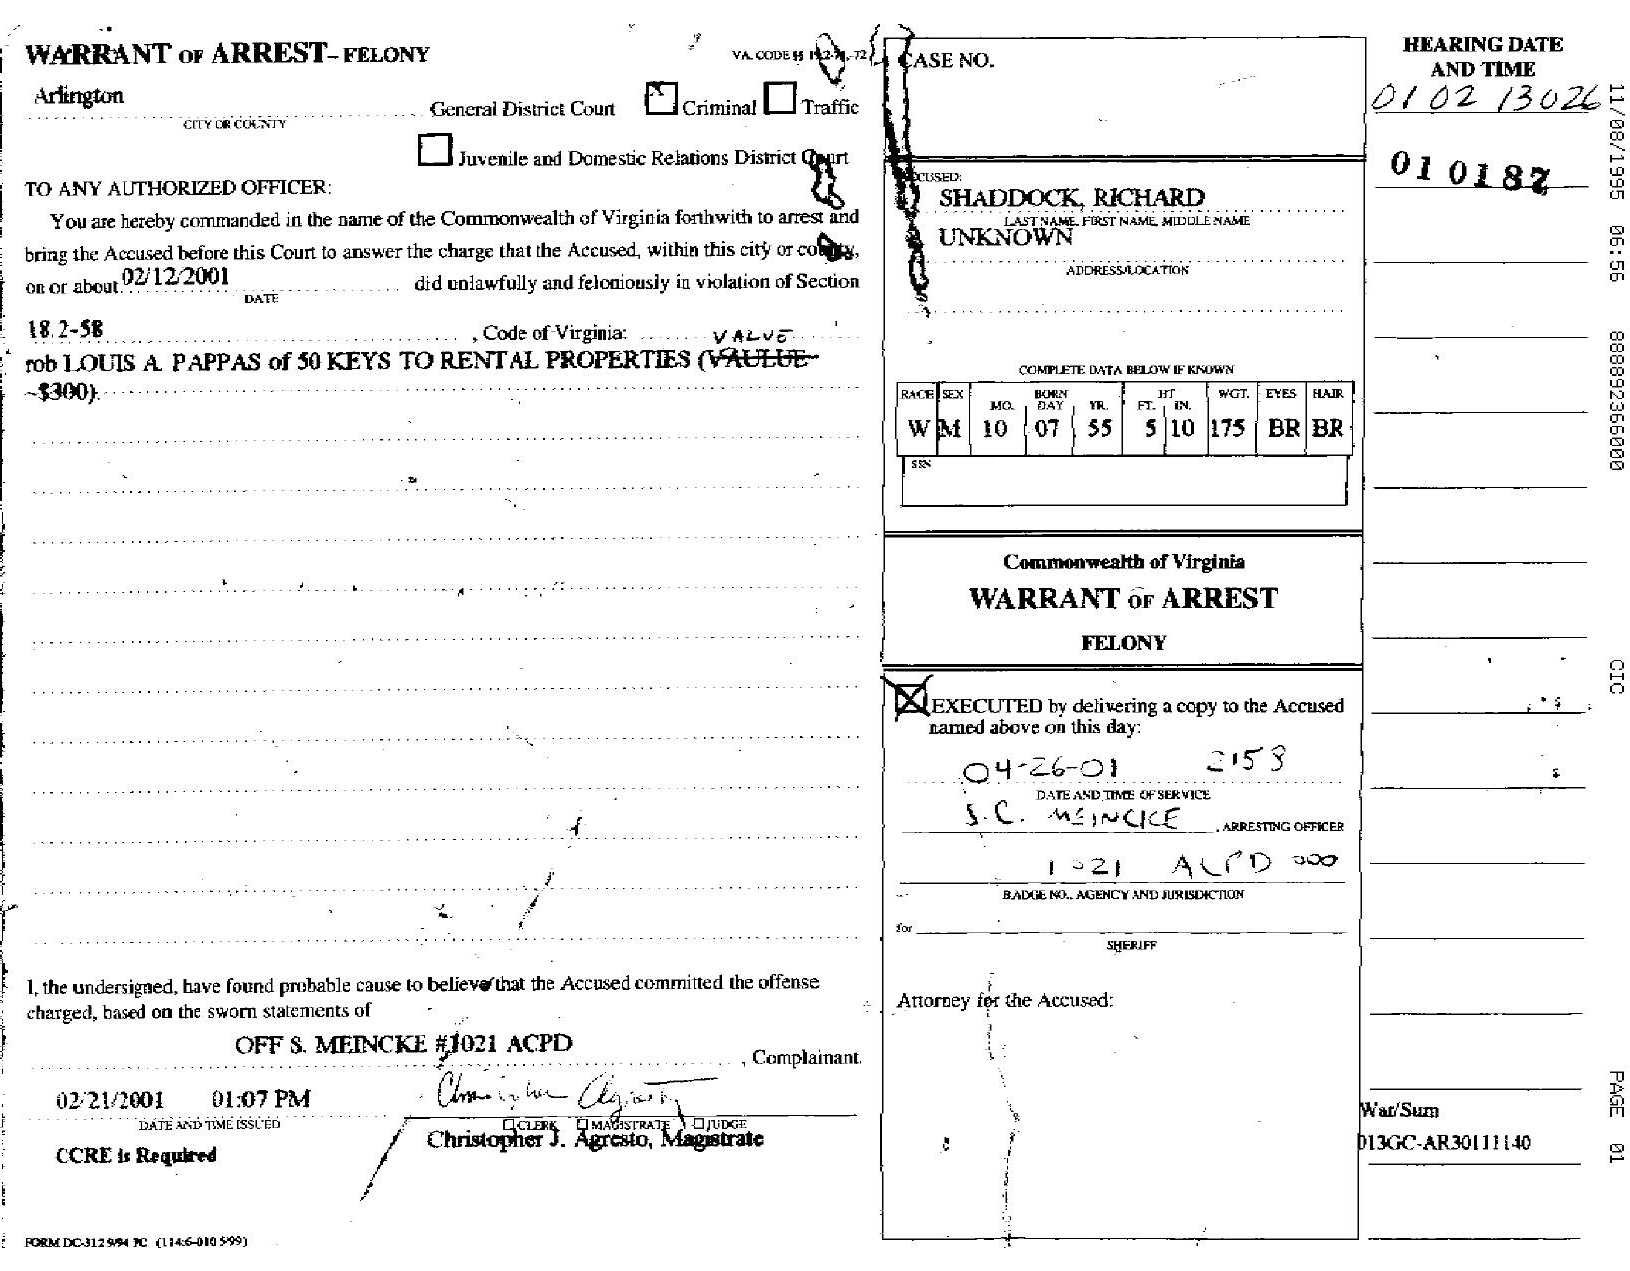 WARRANT OF ARREST– FELONY
VA. CODE §§
Arlington
General District Court [x] Criminal [ ] Traffic
CITY OR COUNTY
[ ] Juvenile and Domestic Relations District Court
TO ANY AUTHORIZED OFFICER:
You are hereby commanded in the name of the Commonwealth of Virginia forthwith to arrest and
bring the Accused before this Court to answer the charge that the Accused, within this city or county,
on or about 02/12/2001 did unlawfully and feloniously in violation of Section
DATE
18.2-58 , Code of Virginia: VALUE
rob LOUIS A. PAPPAS of 50 KEYS TO RENTAL PROPERTIES (VAULUE
~$300).
I, the undersigned, have found probable cause to believe that the Accused committed the offense
charged, based on the sworn statements of
OFF S. MEINCKE #1021 ACPD , Complainant.
02/21/2001 01:07 PM
DATE AND TIME ISSUED
[ ] CLERK [ ] MAGISTRATE [ ] JUDGE
Christopher J. Agresto, Magistrate
CCRE is Required
FORM DC-312 9/94 PC (114:6-010 5/99)
CASE NO.
ACCUSED:
SHADDOCK, RICHARD
LAST NAME, FIRST NAME, MIDDLE NAME
UNKNOWN
ADDRESS/LOCATION
COMPLETE DATA BELOW IF KNOWN
RACE SEX BORN HT WGT. EYES HAIR
MO. DAY YR. FT. IN.
W M 10 07 55 5 10 175 BR BR
SSN
Commonwealth of Virginia
WARRANT OF ARREST
FELONY
[x] EXECUTED by delivering a copy to the Accused
named above on this day:
04-26-01 2158
DATE AND TIME OF SERVICE
S.C. MEINCKE , ARRESTING OFFICER
1021 ACPD 000
BADGE NO., AGENCY AND JURISDICTION
for
SHERIFF
Attorney for the Accused:
HEARING DATE
AND TIME
01 02 13026
01 0187
War/Sum
013GC-AR30111140
11/08/1995 06:56 8888923660000 CIC PAGE 01